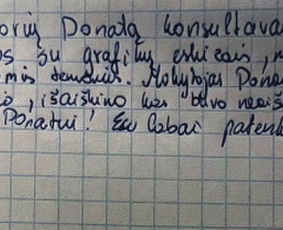 orių Donatą konsultava
s su grafikų eskizais,
mis temomis. Mokytojas Dona
io, išaiškino kas buvo neaiš
Donatui! Esu labai patenk